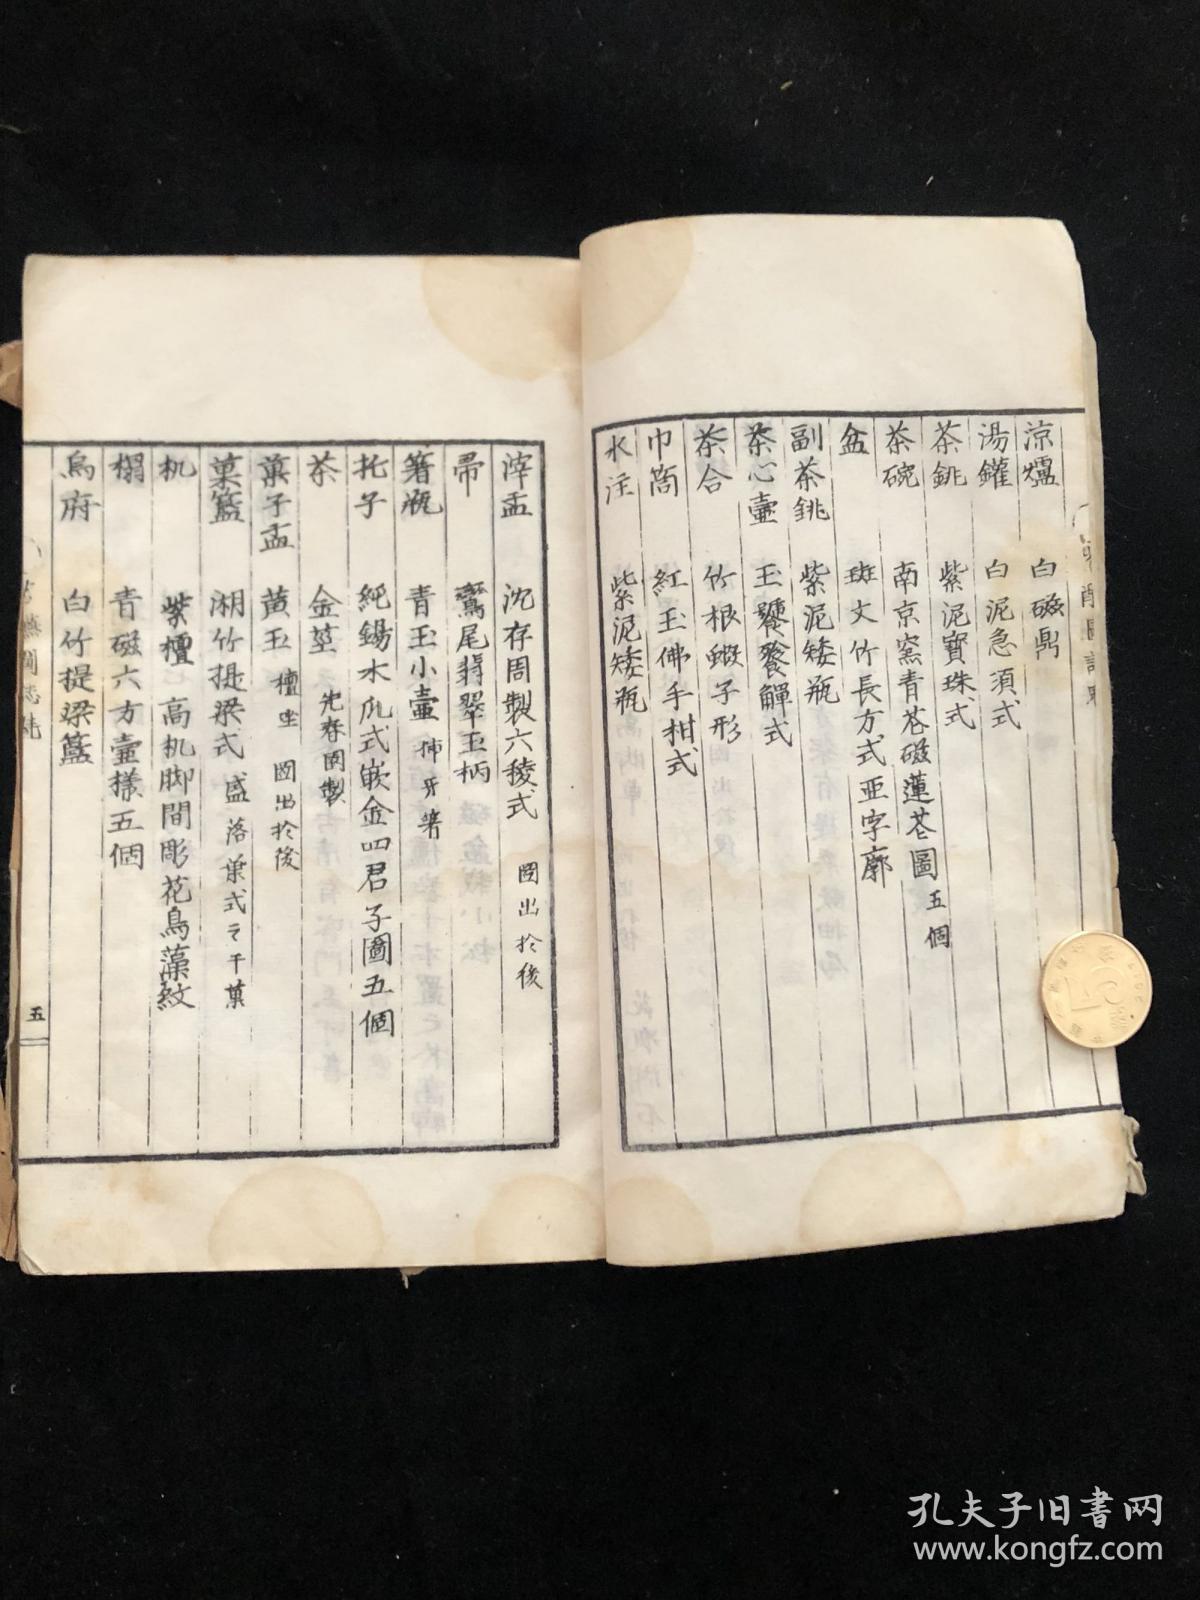 涼爐 白磁鼎
湯鑵 白泥急須式
茶銚 紫泥寶珠式
茶碗 南京窯青苍磁蓮苍圖 五個
盆 斑文竹長方式亜字廓
副茶銚 紫泥矮瓶
茶心壷 玉饕餮觶式
茶合 竹根蝦子形
巾筒 紅玉佛手柑式
水注 紫泥矮瓶
滓盂 沈存周製六稜式 図出於後
帚 鸞尾翡翠玉柄
箸瓶 青玉小壷 挿牙箸
托子 純錫水爪式嵌金四君子圖五個
茶 金莖 先春園製
菓子盂 黄玉 檀坐 図出於後
菓籃 湘竹提梁式 盛落葉式之干菓
机 紫檀 高机脚間彫花鳥藻紋
榻 青磁六方壷様五個
烏府 白竹提梁籃
五
孔夫子旧书网
www.kongfz.com